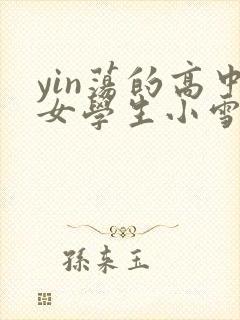 yin蕩的高中
女學生小雪
孫来玉